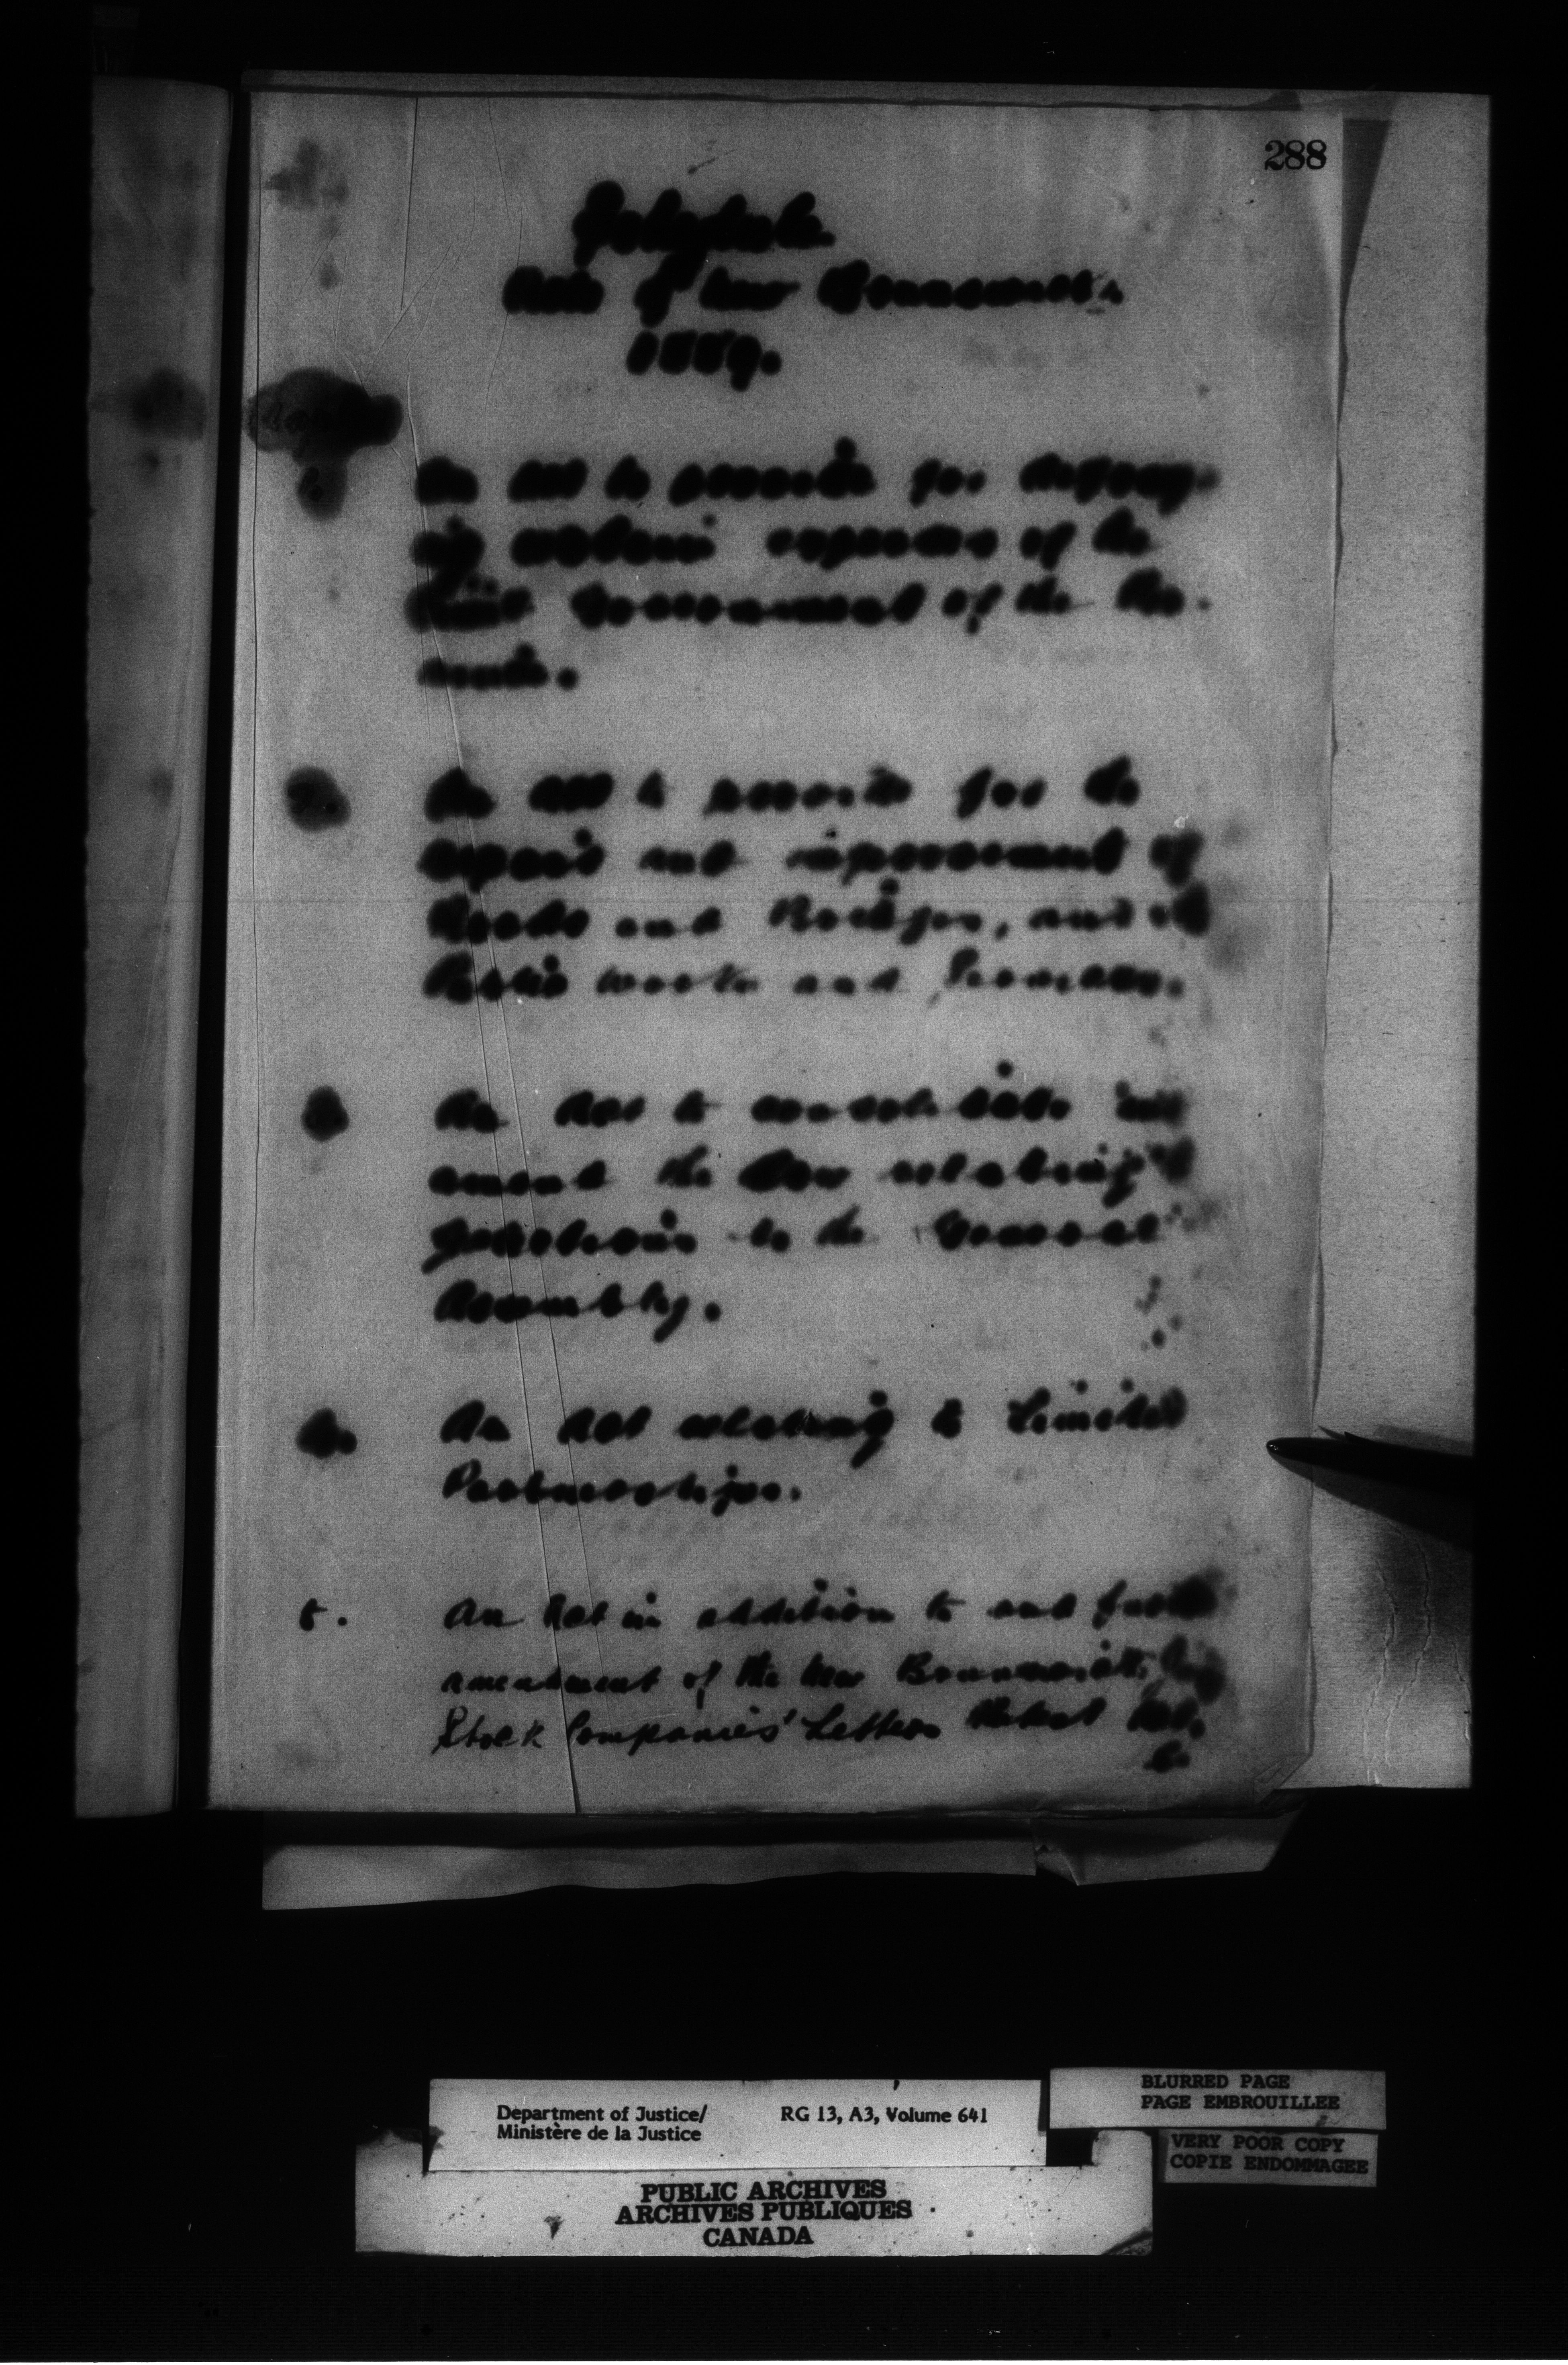 288
Schedule
Acts of New Brunswick.
1889.
Chapter
1. An Act to provide for defray-
ing certain expenses of the
Civil Government of the Pro-
vince.
2. An Act to provide for the
repair and improvement of
Roads and Bridges, and
Public works and Services.
3. An Act to consolidate and
amend the Law relating to
Elections to the General
Assembly.
4. An Act relating to Limited
Partnerships.
5. An Act in addition to and
amendment of the New Brunswick
Stock Companies' Letters Patent Act.
6.
Department of Justice/
Ministère de la Justice
RG 13, A3, Volume 641
BLURRED PAGE
PAGE EMBROUILLEE
VERY POOR COPY
COPIE ENDOMMAGEE
PUBLIC ARCHIVES
ARCHIVES PUBLIQUES
CANADA